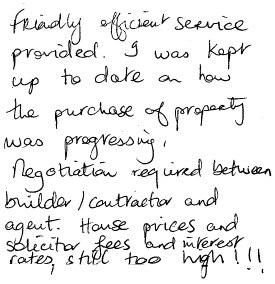 Friendly efficient service
provided. I was kept
up to date on how
the purchase of property
was progressing.
Negotiation required between
builder/contractor and
agent. House prices and
solicitor fees and interest
rates, still too high!!!